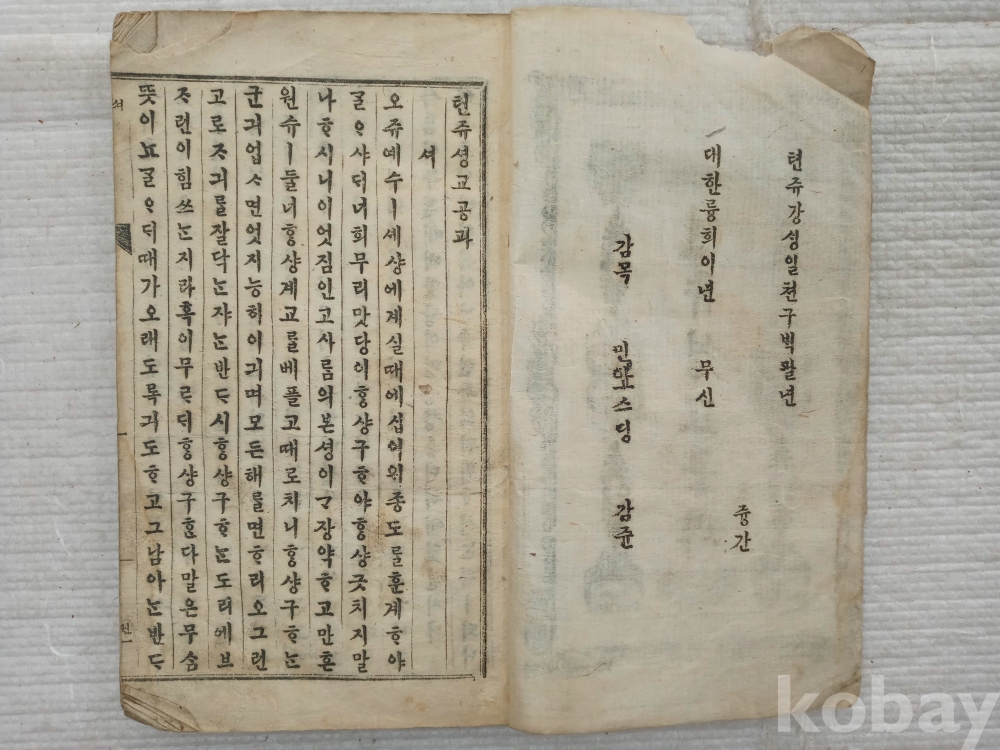 텬쥬강성일쳔구ᄇᆡᆨ팔년
대한륭희이년 무신 즁간
감목 민아오스딩 감쥰
텬쥬셩교공과
셔
오쥬예수ㅣ셰샹에계실때에십여위종도ᄅᆞᆯ훈계ᄒᆞ야
ᄀᆞᆯᄋᆞ샤ᄃᆡ너희무리맛당이ᄒᆞᆼ샹구ᄒᆞ야ᄒᆞᆼ샹긋치지말
나ᄒᆞ시니이엇짐인고사ᄅᆞᆷ의본셩이ᄀᆞ장약ᄒᆞ고만흔
원슈ㅣ둘너ᄒᆞᆼ샹계교ᄅᆞᆯ베플고때로치니ᄒᆞᆼ샹구ᄒᆞᄂᆞᆫ
군긔업ᄉᆞ면엇지능히이긔며모든해ᄅᆞᆯ면ᄒᆞ리오그런
고로ᄌᆞ긔ᄅᆞᆯ잘닥ᄂᆞᆫ쟈ᄂᆞᆫ반ᄃᆞ시ᄒᆞᆼ샹구ᄒᆞᄂᆞᆫ도리에브
ᄌᆞ런이힘쓰ᄂᆞᆫ지라혹이무ᄅᆞᄃᆡᄒᆞᆼ샹구ᄒᆞᆫ다말은무ᄉᆞᆷ
뜻이뇨ᄀᆞᆯᄋᆞᄃᆡ때가오래도록긔도ᄒᆞ고그남아ᄂᆞᆫ반ᄃᆞ
셔
kobay